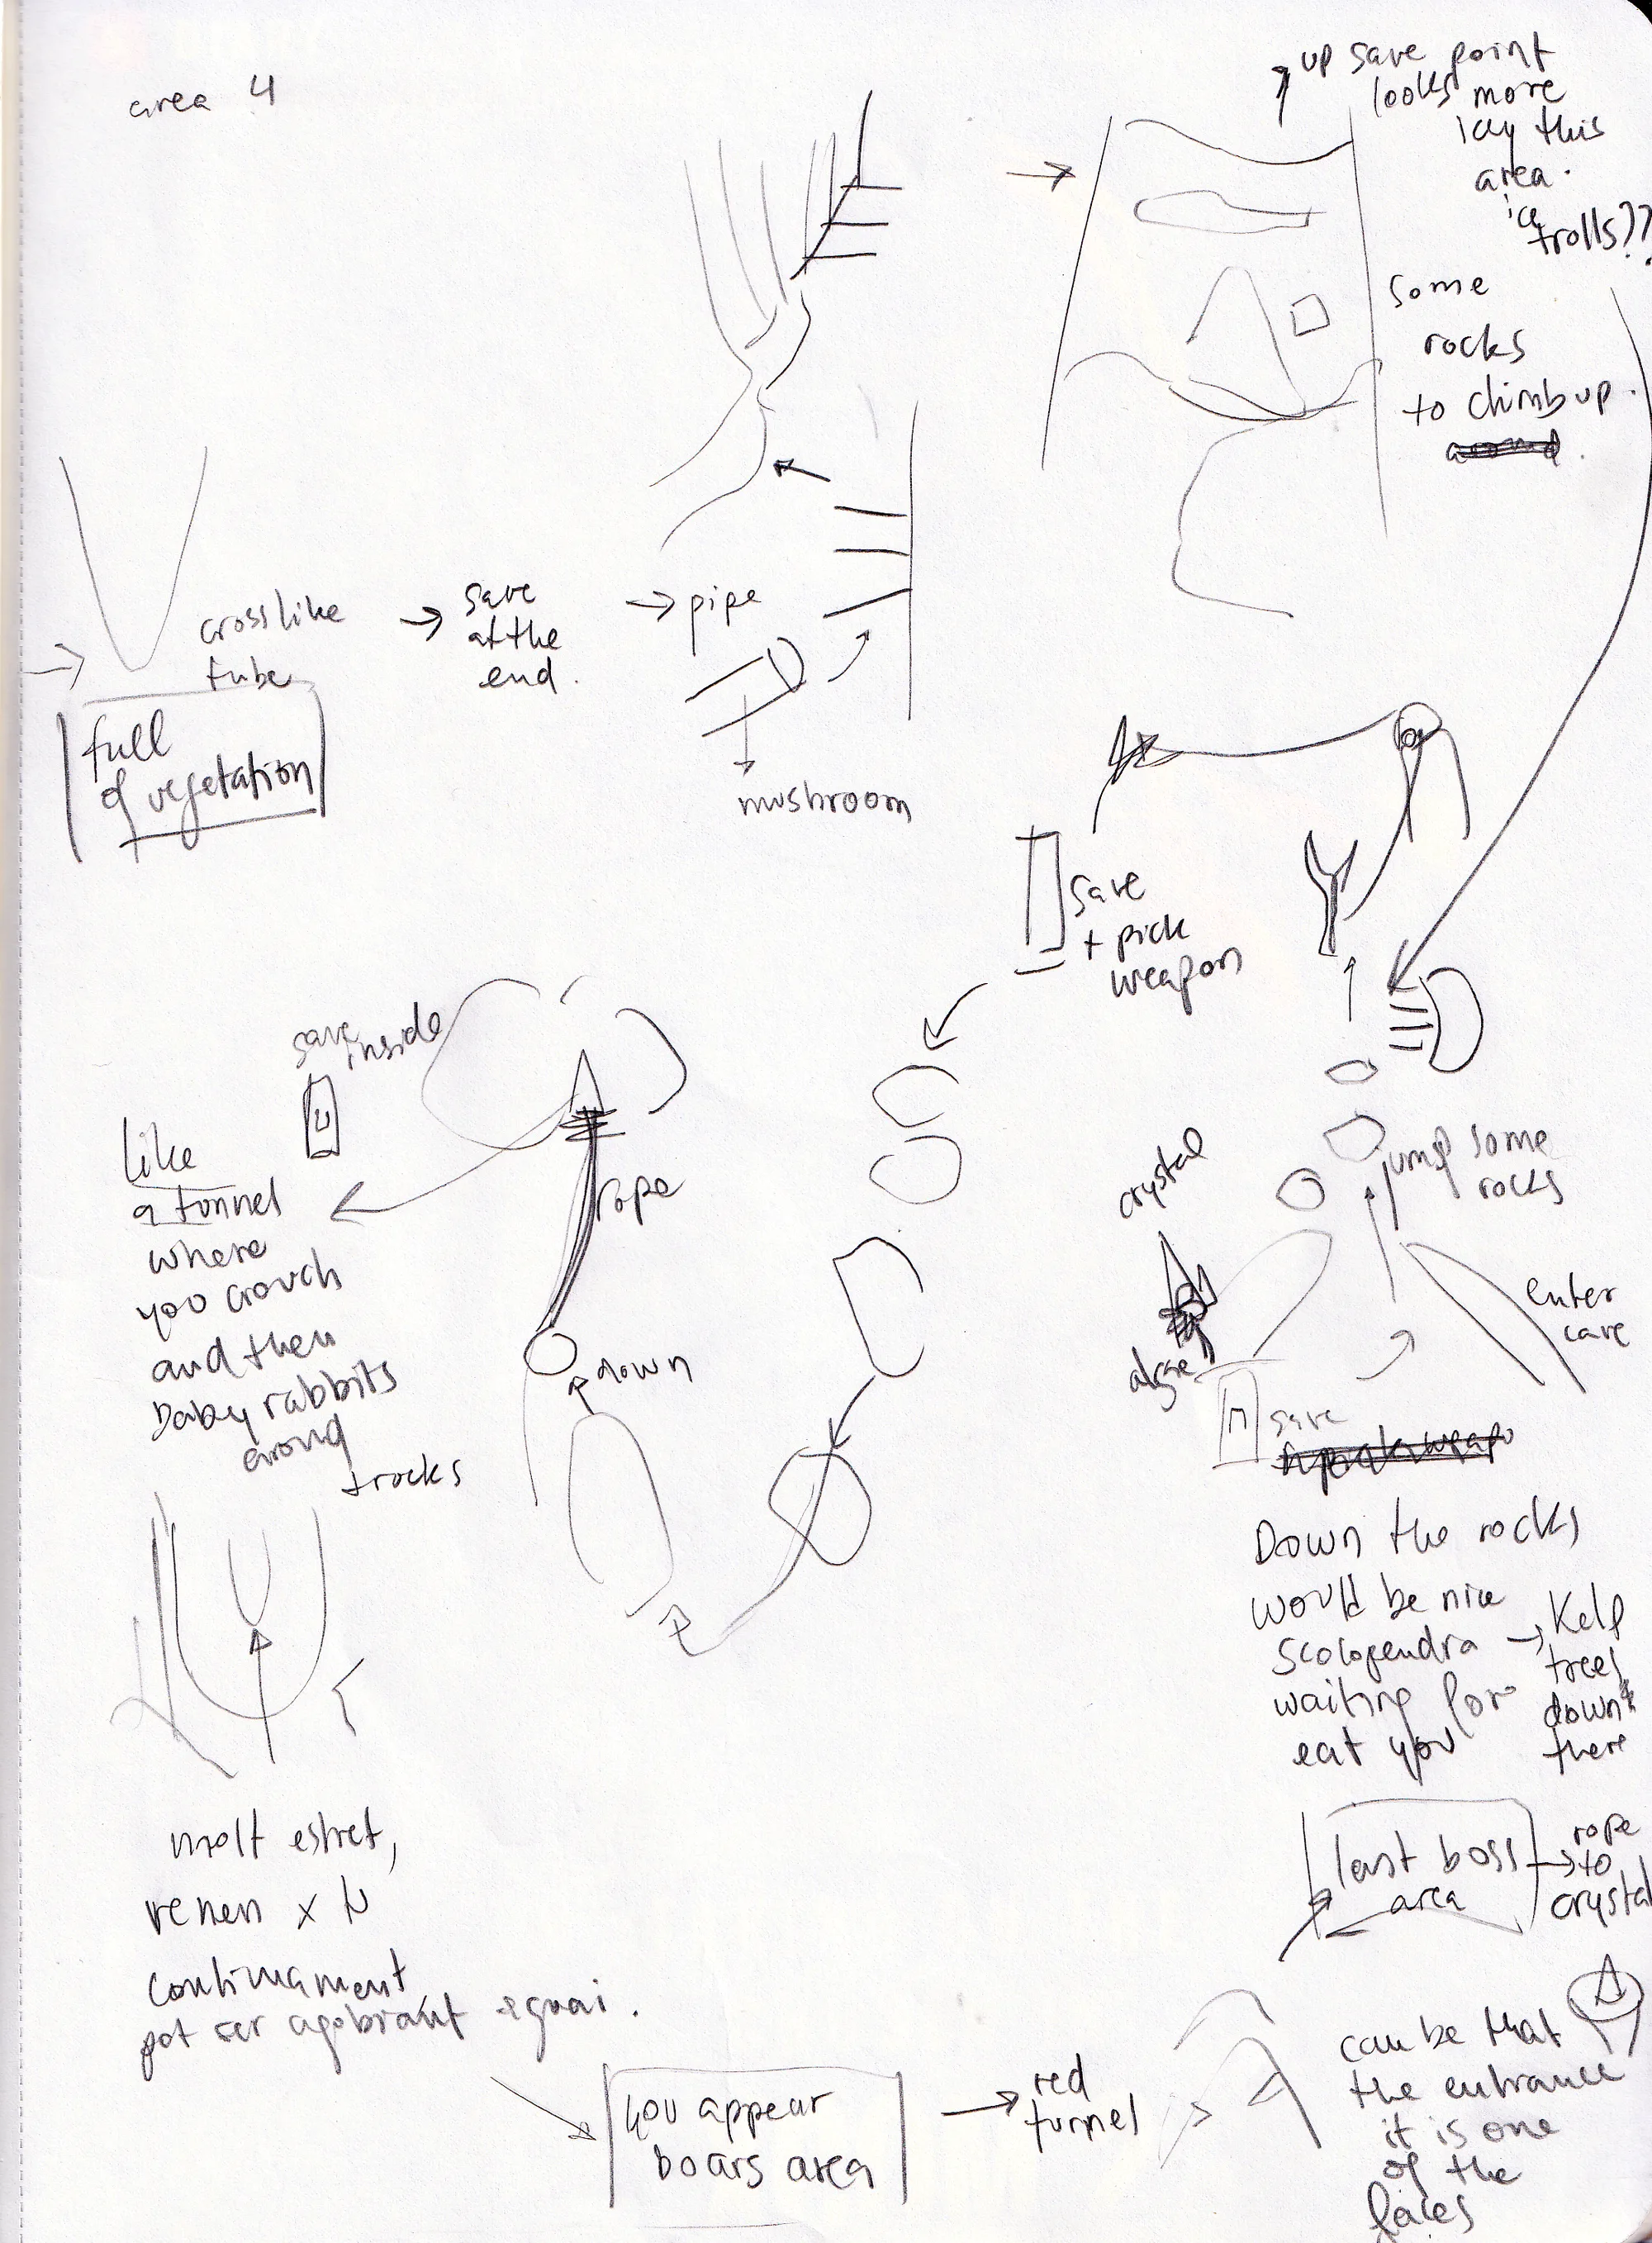 area 4
up save point
looks more
icy this
area.
ice
trolls??
some
rocks
to climb up.
cross like
tube
full
of vegetation
save
at the
end.
pipe
mushroom
save
+ pick
weapon
save
inside
like
a tunnel
where
you crouch
and then
baby rabbits
around
trocks
rope
down
crystal
algae
jump some
rocks
enter
cave
save
Down the rocks
would be nice
scolopendra
waiting for
eat you
Kelp
trees
down
there
last boss
area
rope
to
crystal
molt estret,
venen x
continuament
pot ser agobiant
you appear
boars area
red
tunnel
can be that
the entrance
it is one
of the
faces